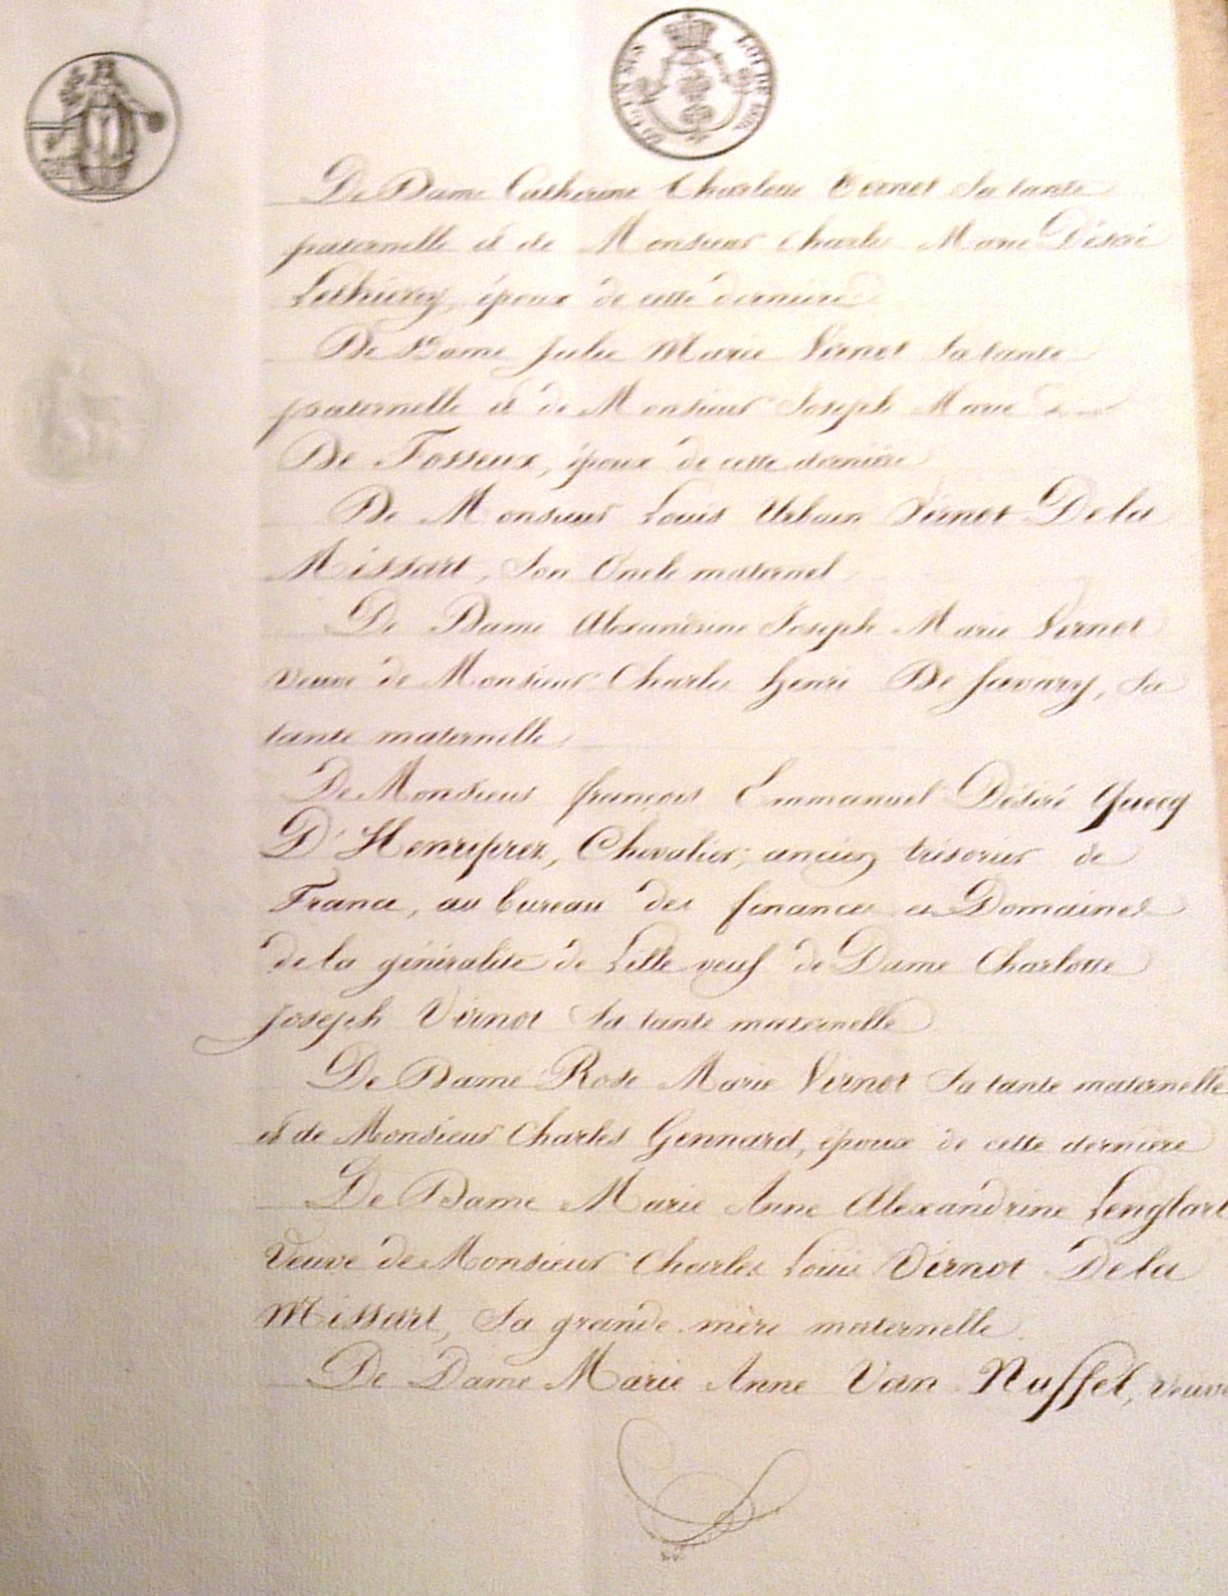 LOI DE
De Dame Catherine Charlotte Virnot Sa tante
paternelle et de Monsieur Charles Marie Désiré
Lethierry, époux de cette derniere
De Dame Julie Marie Virnot Sa tante
paternelle et de Monsieur Joseph Marie
De Fosseux, époux de cette dernière
De Monsieur Louis Urbain Virnot De la
Missart, Son Oncle maternel
De Dame Alexandrine Joseph Marie Virnot
veuve de Monsieur Charles henri De Savary, Sa
tante maternelle
De Monsieur françois Emmanuel Désiré Quecq
D'Henripret, Chevalier, ancien trésorier de
France, au bureau des finances et Domaines
de la généralité de Lille veuf de Dame Charlotte
Joseph Virnot Sa tante maternelle
De Dame Rose Marie Virnot Sa tante maternelle
et de Monsieur Charles Gennard, époux de cette derniere
De Dame Marie Anne Alexandrine Lenglart
Veuve de Monsieur Charles Louis Virnot De la
Missart, Sa grande mère maternelle
De Dame Marie Anne Van Nuffel, veuve